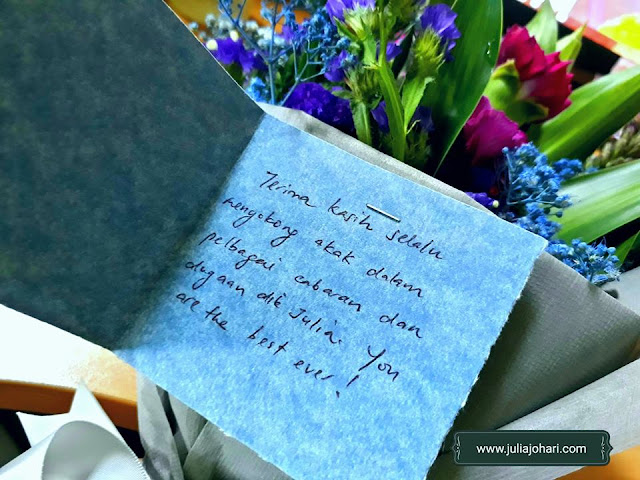 Terima kasih selalu
menyokong akak dalam
pelbagai cabaran dan
dugaan dik Julia. You
are the best ever!
www.juliajohari.com